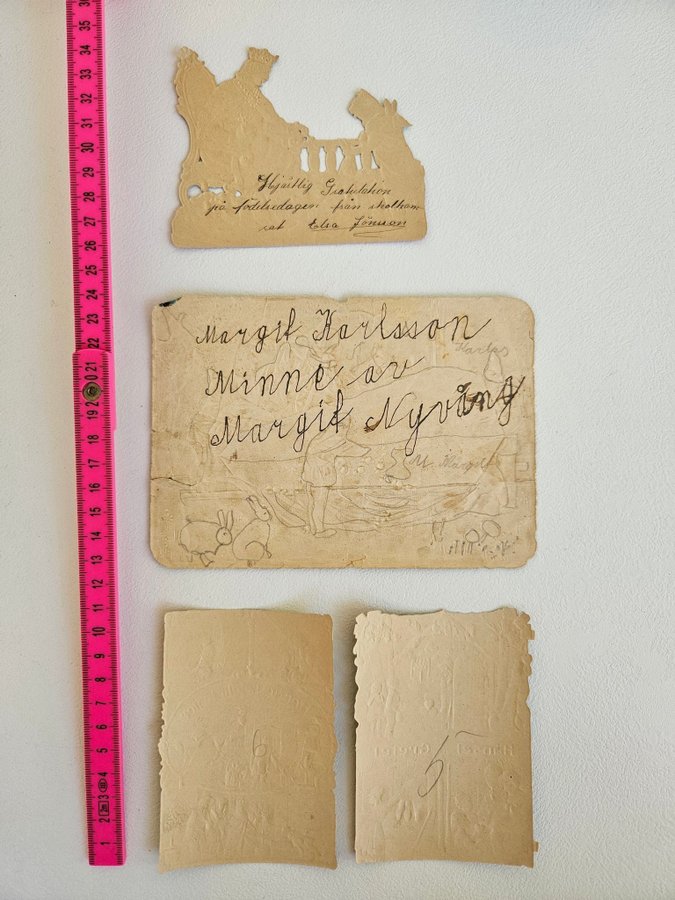 Hjärtlig Gratulation
på födelsedagen från skolkam
rat Elsa Jönsson
Margit Karlsson
Minne av
Margit Nyväng
Karlss
M. Margit
6
5
36
35
34
33
32
31
30
29
28
27
26
25
24
23
22
21
20
19
18
17
16
15
14
13
12
11
10
9
8
7
6
5
4
3
2
1